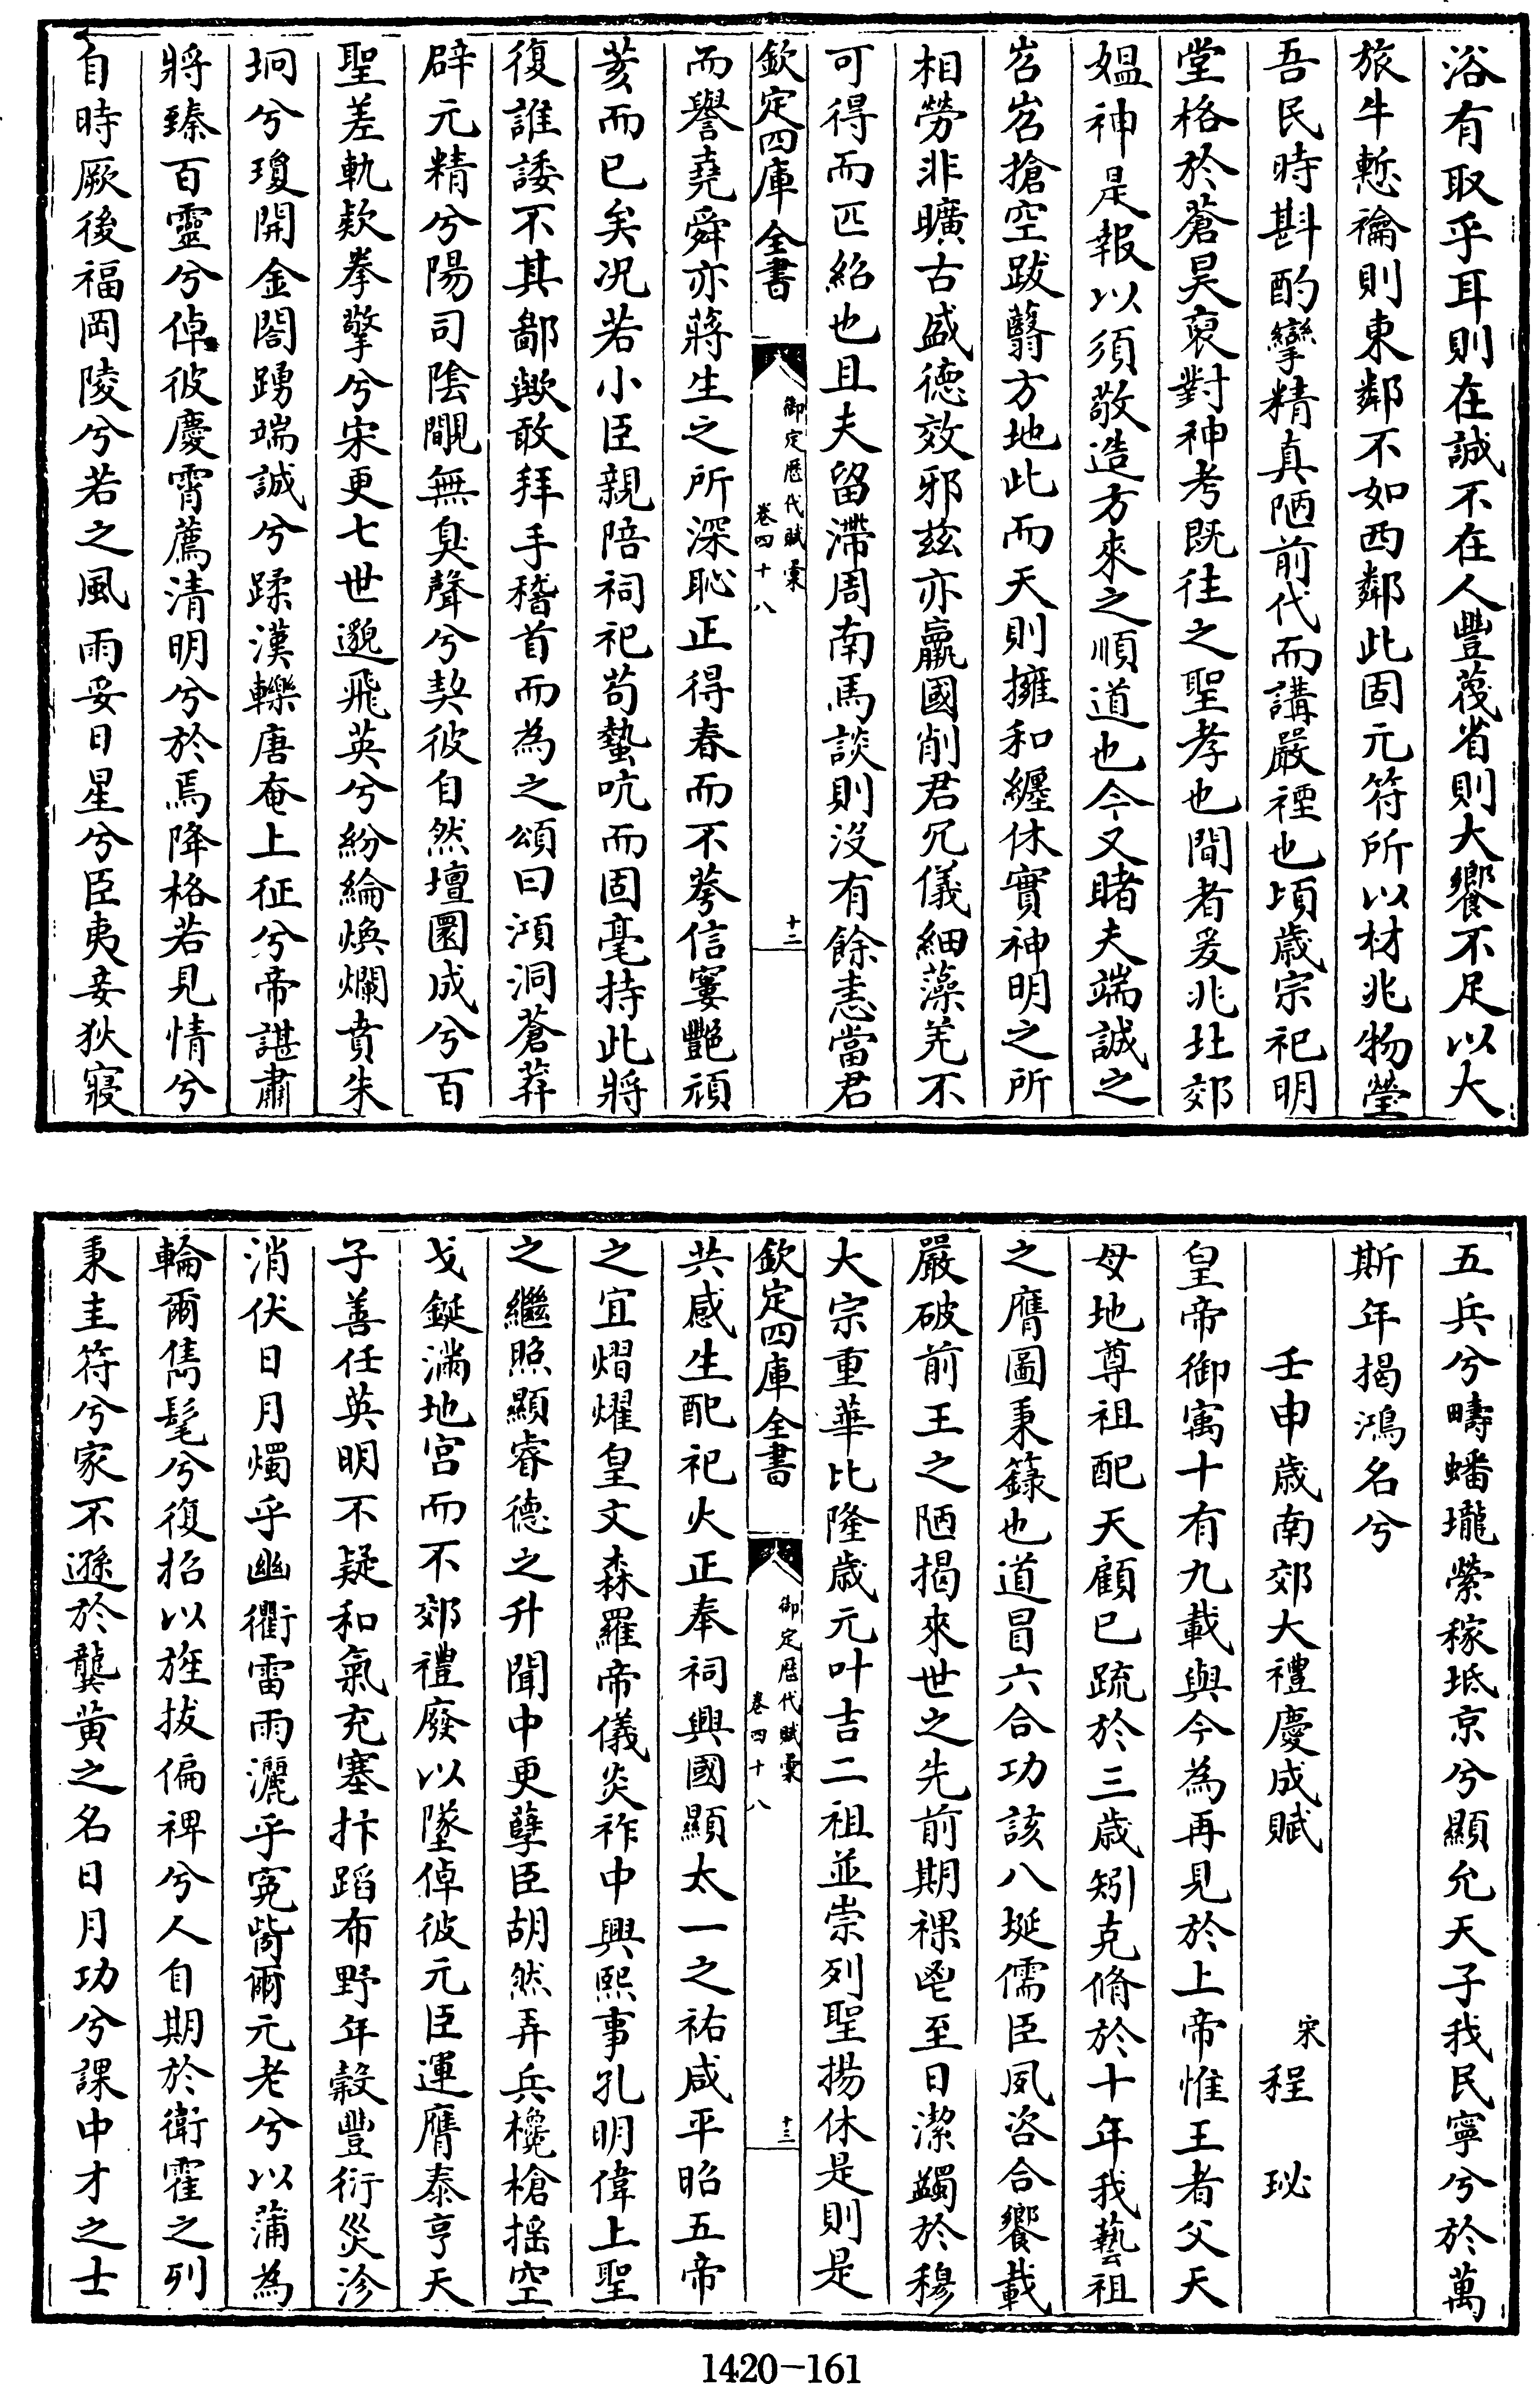 浴有取乎耳則在誠不在人豐薎省則大饗不足以大
旅牛慙禴則東鄰不如西鄰此固元符所以材兆物瑩
吾民時斟酌孿精真陋前代而講嚴禋也頃歲宗祀明
堂格於蒼昊裒對神考既往之聖孝也間者爰兆北郊
媼神是報以須敬造方來之順道也今又睹夫端誠之
岧岧搶空跋蘙方地此而天則擁和纒休實神明之所
相勞非曠古盛德效邪兹亦羸國削君冗儀細藻羌不
可得而匹紹也且夫留滯周南馬談則沒有餘恚當君
欽定四庫全書 御定歷代賦彙 卷四十八 十二
而譽堯舜亦蔣生之所深恥正得春而不荂信寠艷頑
荄而已矣况若小臣親陪祠祀苟蟄吭而固毫持此將
復誰諉不其鄙歟敢拜手稽首而為之頌曰澒洞蒼莽
辟元精兮陽司陰覵無臭聲兮契彼自然壇圜成兮百
聖差軌欵拳擎兮宋更七世邈飛英兮紛綸煥爛賁朱
坰兮瓊開金閤踴端誠兮蹂漢轢唐奄上征兮帝諶肅
將臻百靈兮倬彼慶霄薦清明兮於焉降格若見情兮
自時厥後福岡陵兮若之風雨妥日星兮臣夷妾狄寢
五兵兮疇蟠壠縈稼坻京兮兮顯允天子我民寧兮於萬
斯年揭鴻名兮
壬申歲南郊大禮慶成賦 宋程珌
皇帝御寓十有九載與今為再見於上帝惟王者父天
母地尊祖配天顧已疏於三歲矧克脩於十年我藝祖
之膺圖秉籙也道冒六合功該八埏儒臣夙咨合饗載
嚴破前王之陋揭來世之先前期祼鬯至日潔蠲於穆
大宗重華比隆歲元叶吉二祖並崇列聖揚休是則是
欽定四庫全書 御定歷代賦彙 卷四十八 十三
共感生配祀火正奉祠興國顯太一之祐咸平昭五帝
之宜熠燿皇文森羅帝儀炎祚中興熙事孔明偉上聖
之繼照顯睿德之升聞中更孽臣胡然弄兵欃槍搖空
戈鋋滿地宮而不郊禮廢以墜倬彼元臣運膺泰亨天
子善任英明不疑和氣充塞抃蹈布野年穀豐衍災沴
消伏日月燭乎幽衢雷雨灑乎寃胔爾元老兮以蒲為
輪爾雋髦兮復招以旌拔偏裨兮人自期於衛霍之列
秉圭符兮家不遜於龔黃之名日月功兮課中才之士